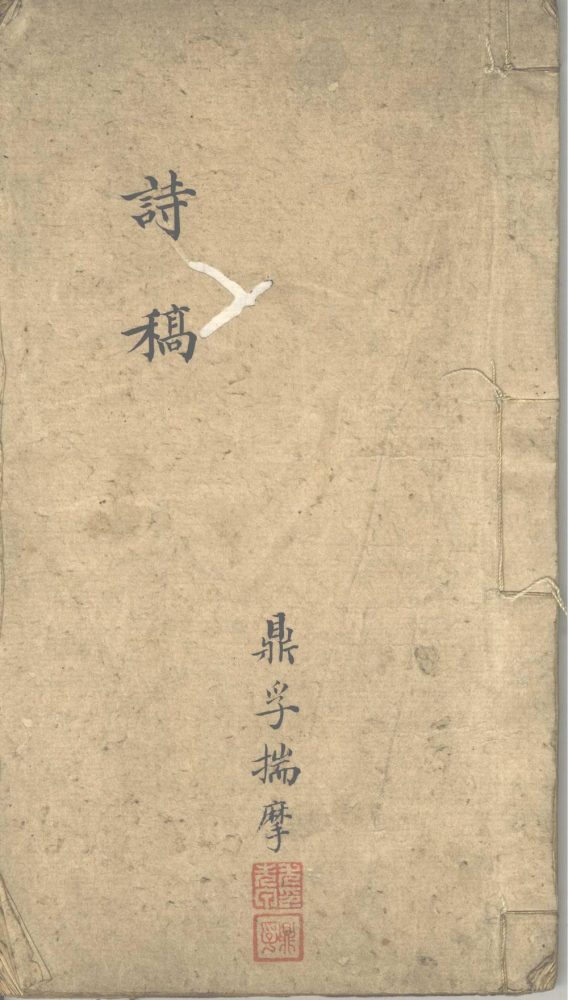 詩稿
鼎孚揣摩